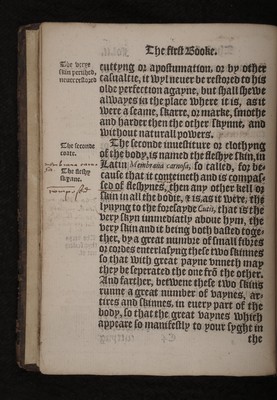 The first Booke.
The verye
skin perished,
neuer restored
cuttyng or apostumation, or by other
casualtie, it wyl neuer be restored to his
olde perfection agayne, but shall shewe
alwayes in the place where it is, as it
were a seame, skarre, or marke, smothe
and harder then the other skynne, and
without naturall powers.
The seconde
coate.
The seconde inuestiture or clothyng
of the body, is named the fleshye skin, in
Latin Membrana carnosa, so called, for be-
cause that it conteineth and is compas-
The fleshy
skynne.
sed of fleshynes, then any other fell or
skin in all the bodie, & is as it were, the
lynyng to the foresayde Cutis, that is the
very skyn immediatly aboue hym, the
very skin and it being both basted toge-
ther, by a great number of small fibres
or cordes enterlasyng these two skinnes
so that with great payne vnneth may
they be seperated the one frō the other.
And farther, betwene these two skins
runne a great number of vaynes, ar-
tires and skinnes, in euery part of the
body, so that the great vaynes which
appeare so manifestly to your syght in
the